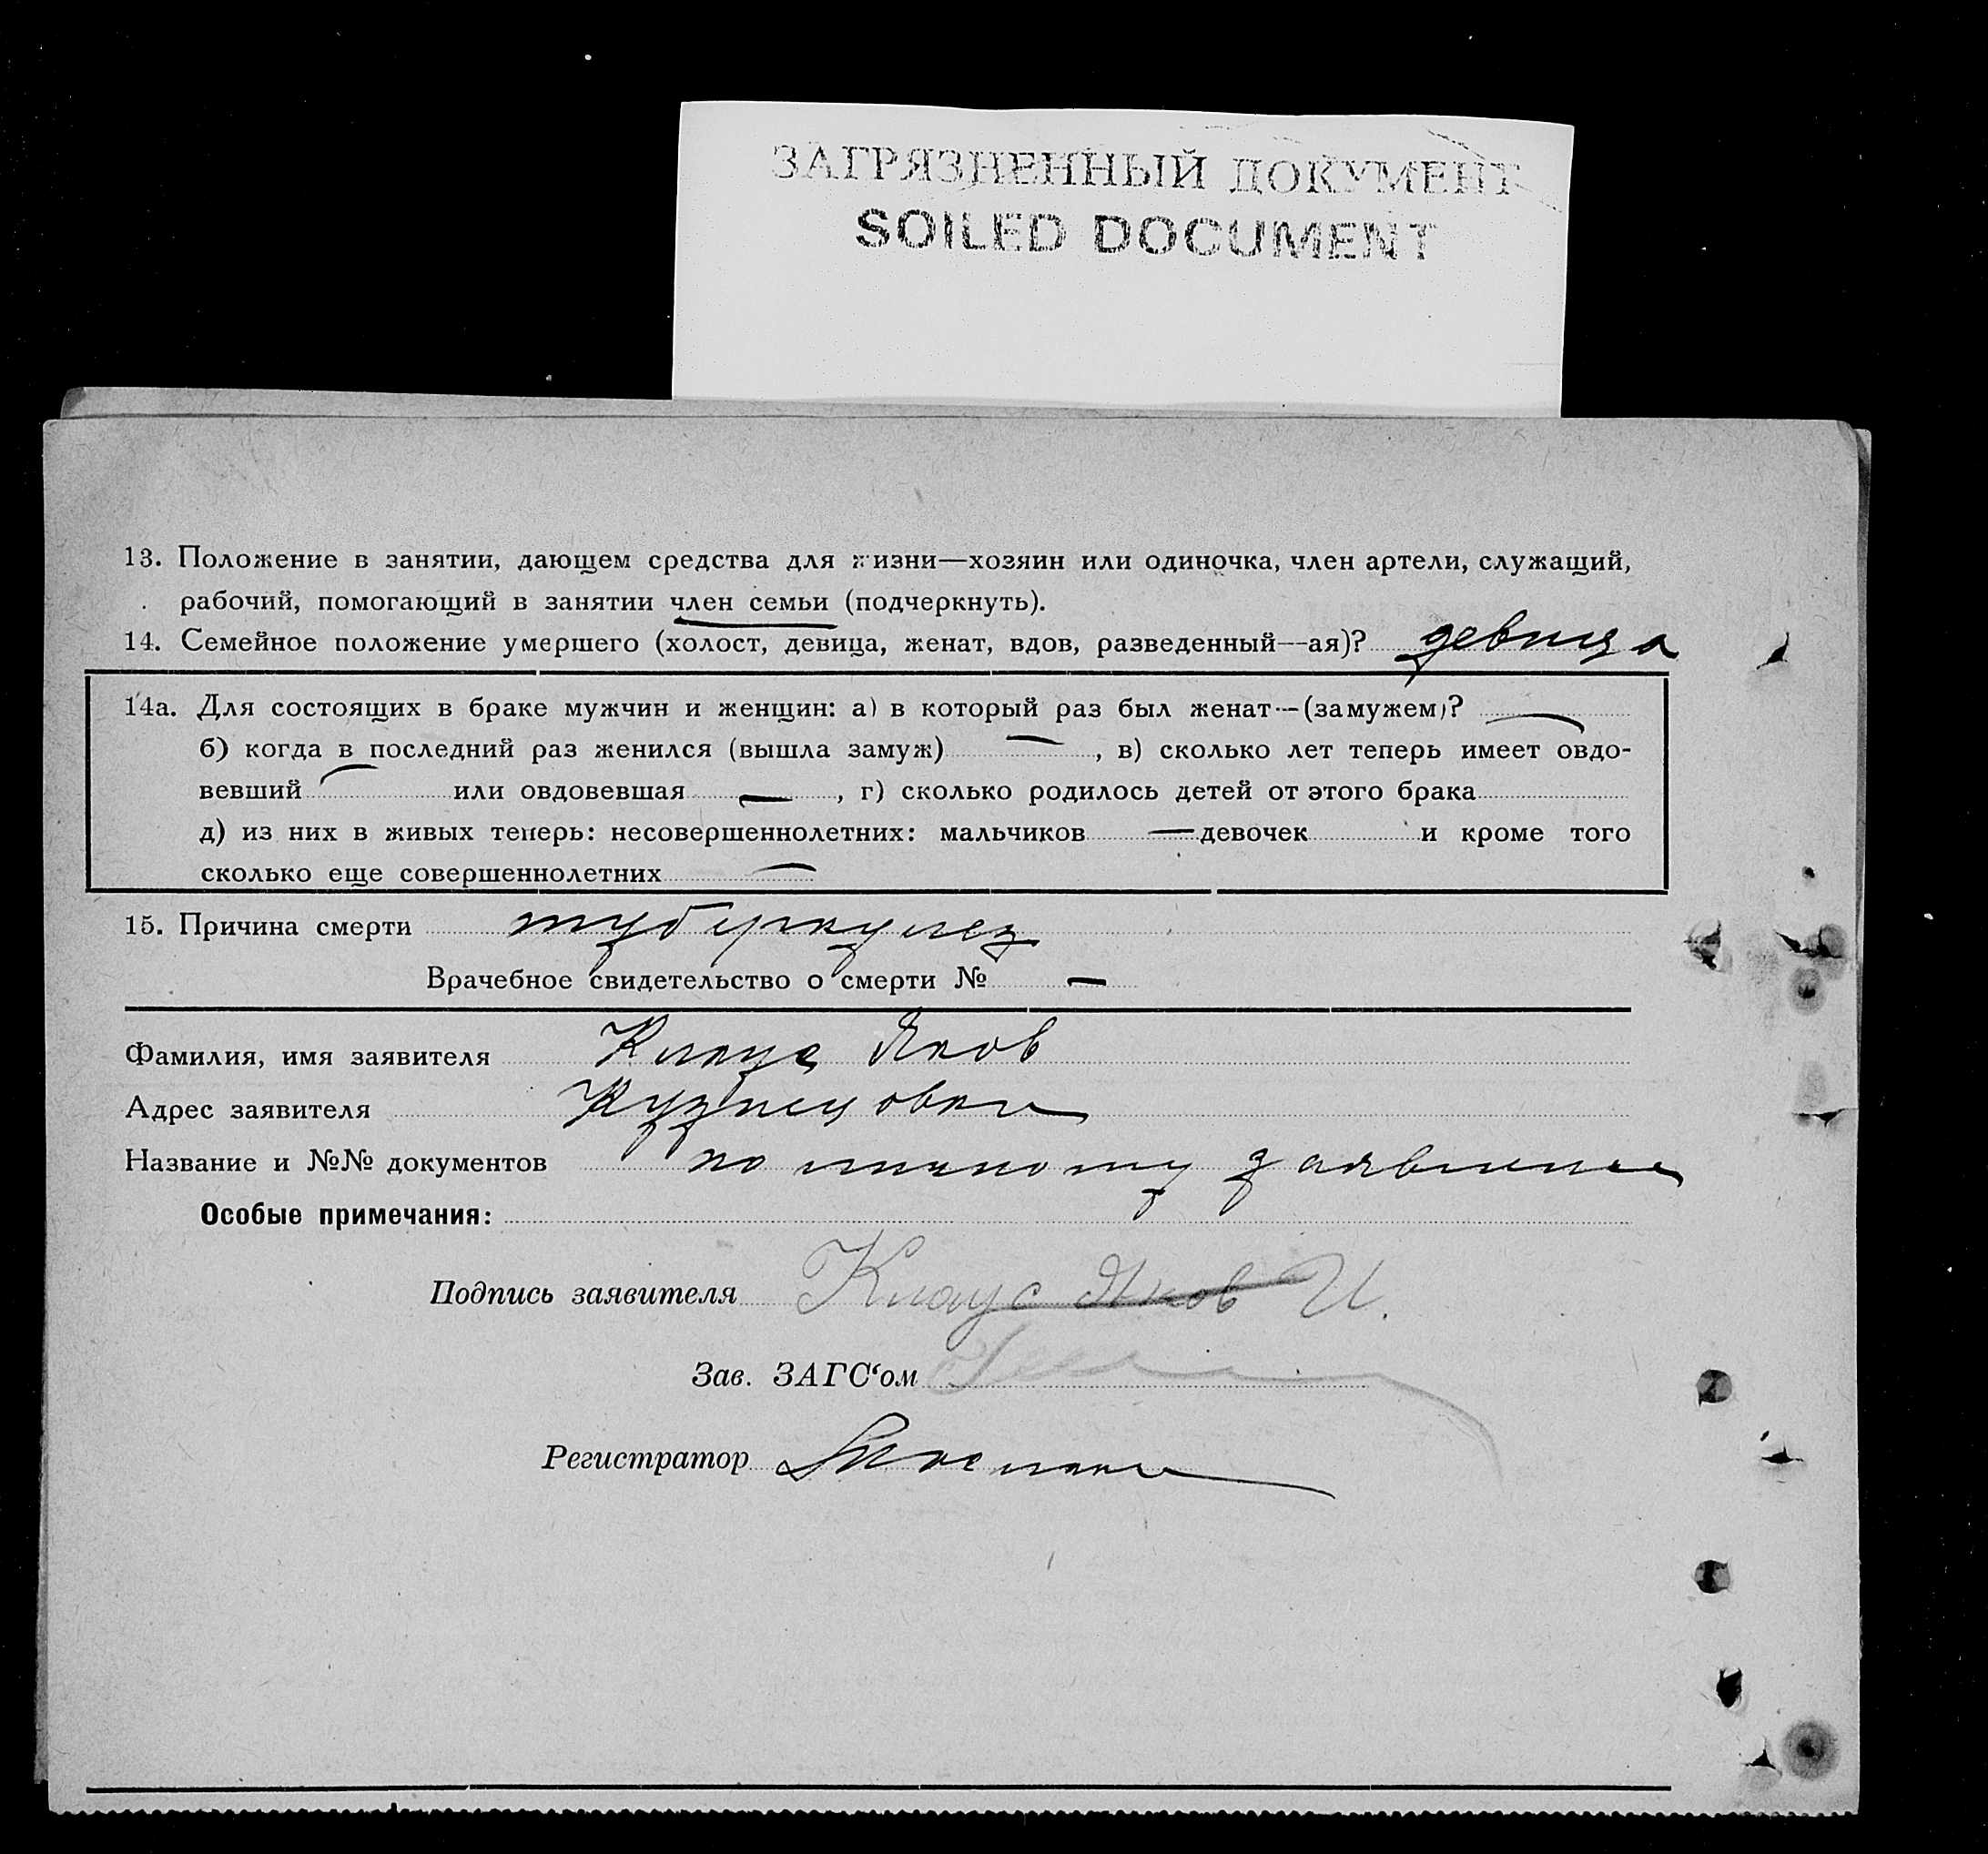 ЗАГРЯЗНЕННЫЙ ДОКУМЕНТ
SOILED DOCUMENT
13. Положение в занятии, дающем средства для жизни—хозяин или одиночка, член артели, служащий,
рабочий, помогающий в занятии член семьи (подчеркнуть).
14. Семейное положение умершего (холост, девица, женат, вдов, разведенный—ая)? девица
14а. Для состоящих в браке мужчин и женщин: а) в который раз был женат—(замужем)? —
б) когда в последний раз женился (вышла замуж) — , в) сколько лет теперь имеет овдо-
вевший — или овдовевшая — , г) сколько родилось детей от этого брака
д) из них в живых теперь: несовершеннолетних: мальчиков — девочек и кроме того
сколько еще совершеннолетних —
15. Причина смерти туберкулез
Врачебное свидетельство о смерти № —
Фамилия, имя заявителя Клаус Яков
Адрес заявителя
Название и №№ документов по личному заявлению
Особые примечания:
Подпись заявителя Клаус Яков И.
Зав. ЗАГС‘ом
Регистратор